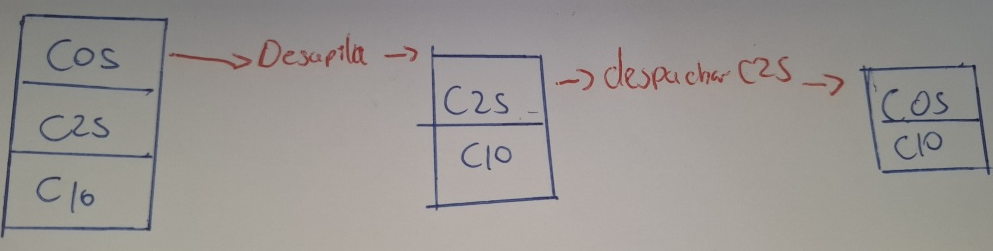 COS
C2S
C10
Desapila
C2S
C10
despachar C2S
COS
C10